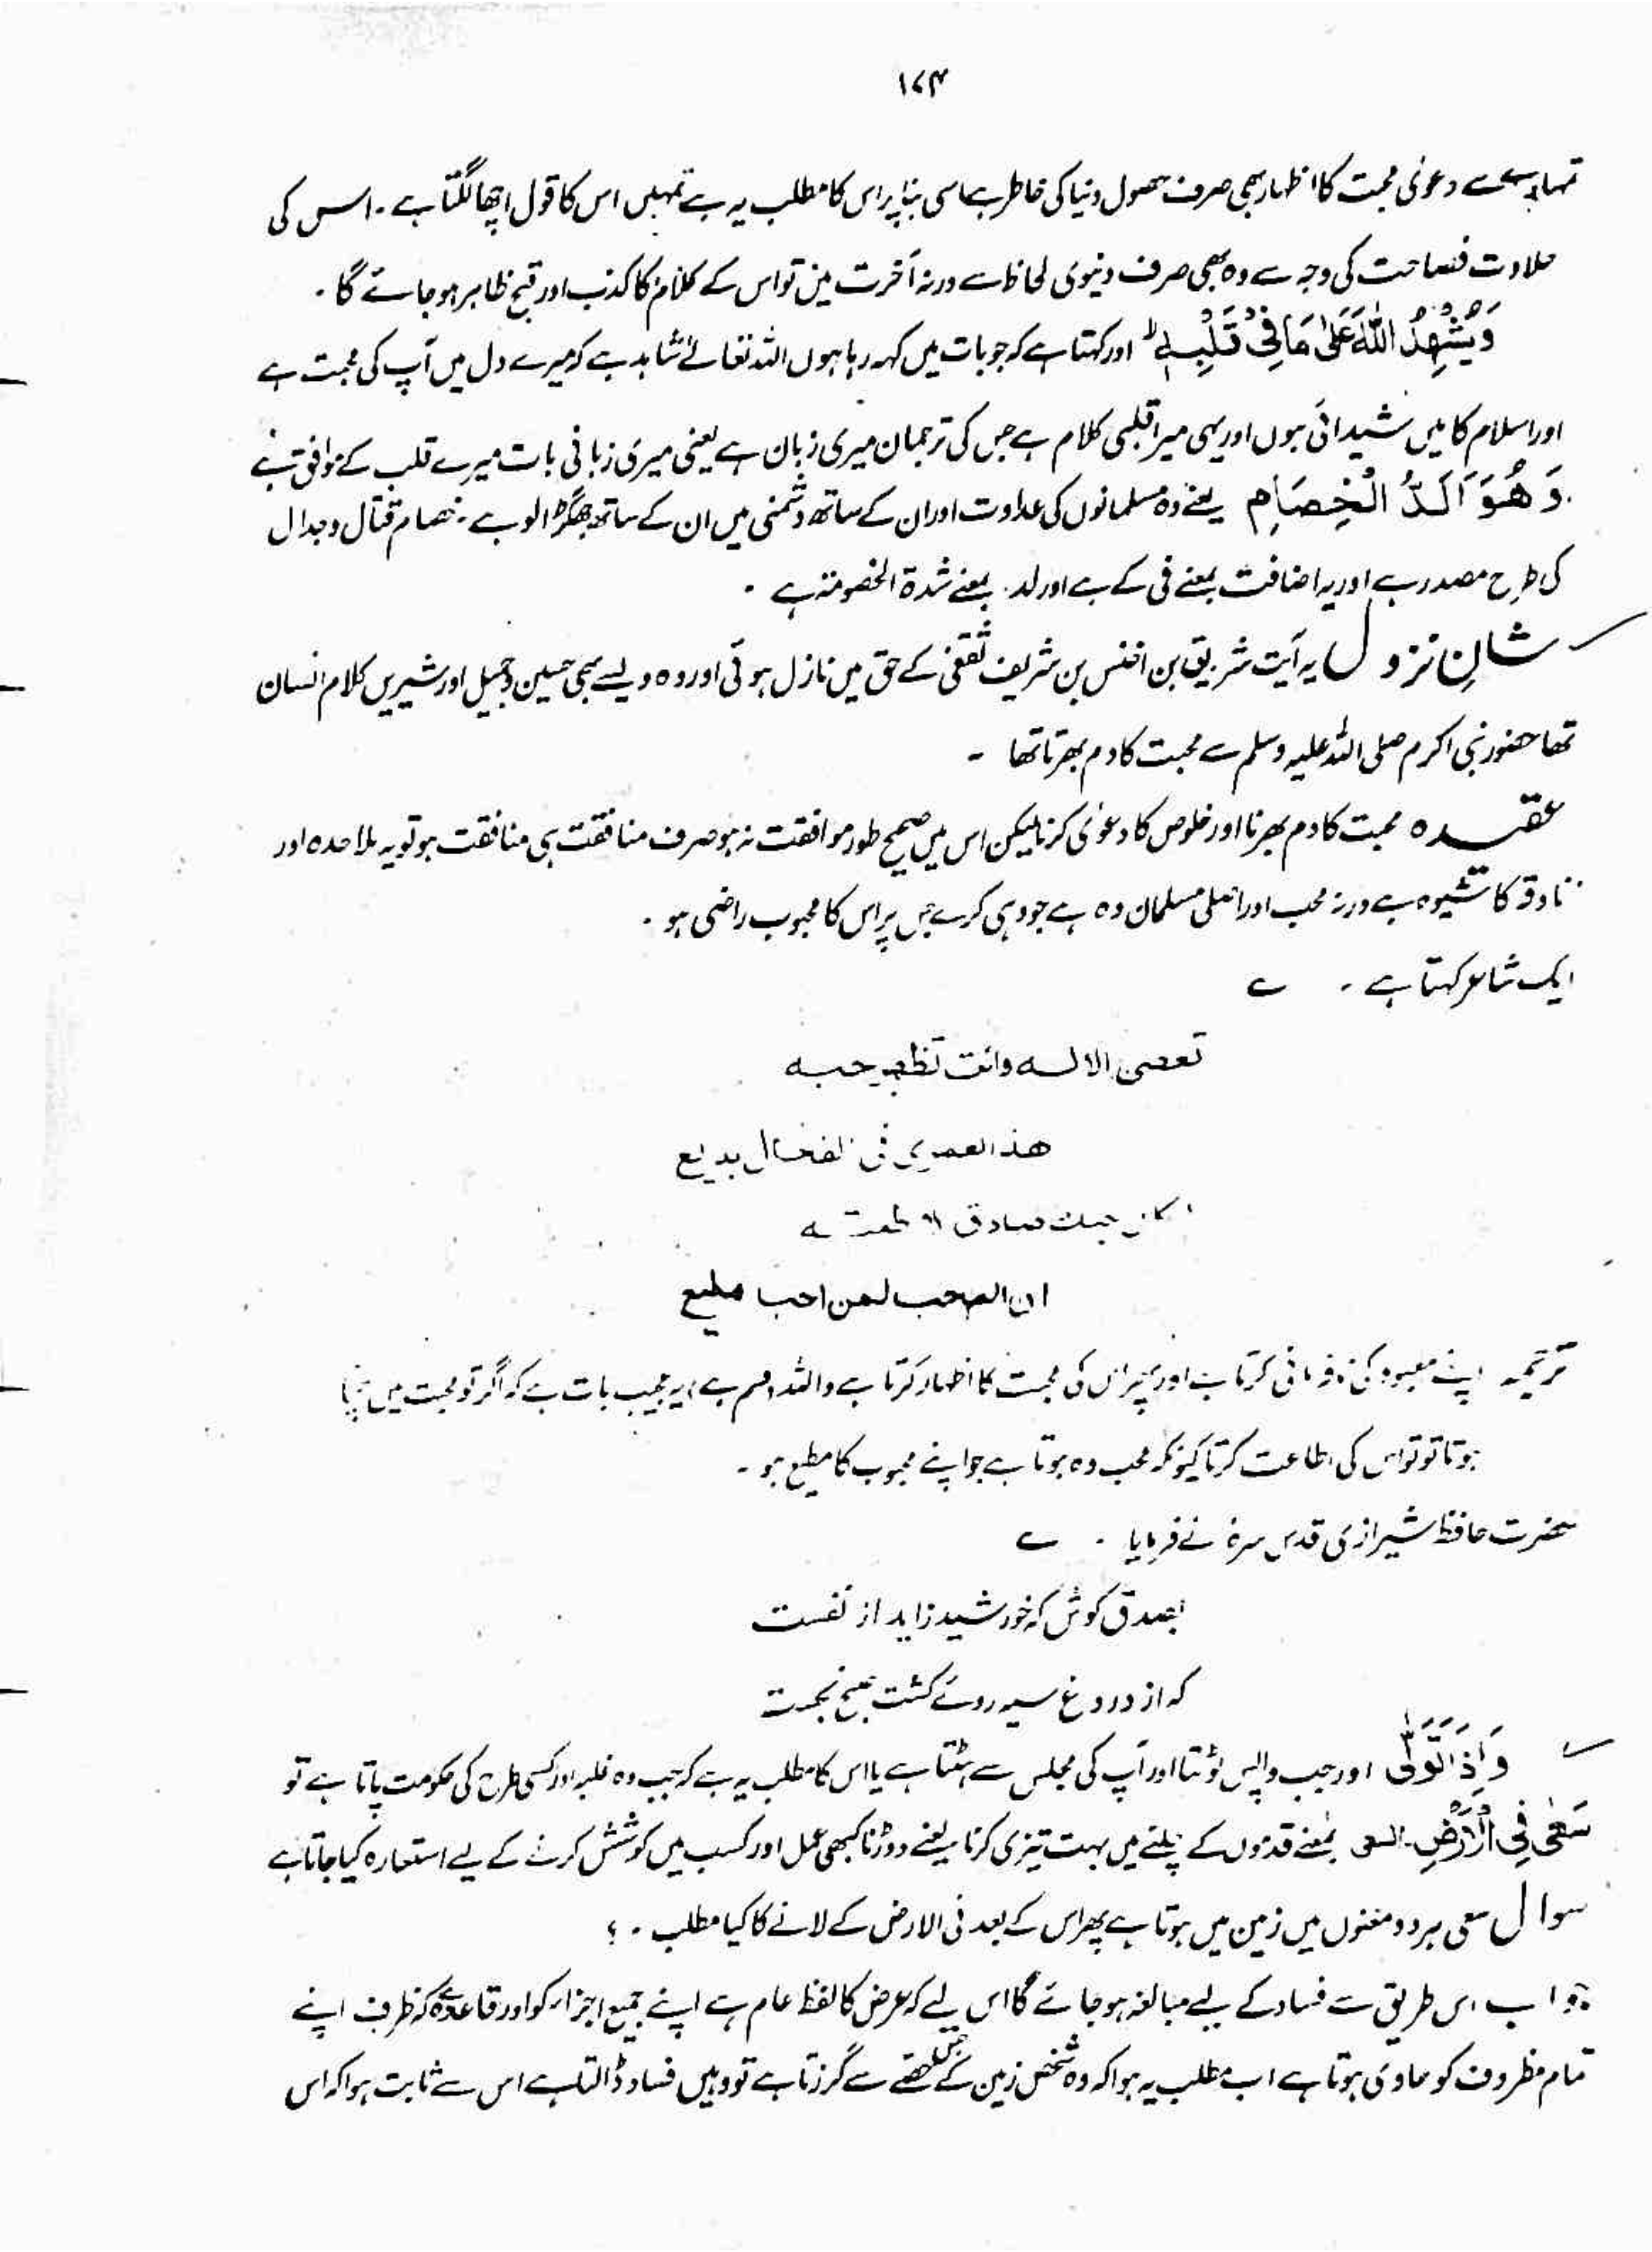 ۱۷۴
تمہارے سے دعوٰی محبت کا اظہار بھی صرف حصول دنیا کی خاطر ہے اسی بنا پر اس کا مطلب یہ ہے تمہیں اس کا قول اچھا لگتا ہے ۔ اس کی
حلاوت فصاحت کی وجہ سے وہ بھی صرف دنیوی لحاظ سے ورنہ آخرت میں تو اس کے کلام کا کذب اور قبح ظاہر ہو جائے گا ۔
وَيُشْهِدُ اللّٰهَ عَلٰى مَا فِيْ قَلْبِهٖ ؕ اور کہتا ہے کہ جو بات میں کہہ رہا ہوں اللہ تعالےٰ شاہد ہے کہ میرے دل میں آپ کی محبت ہے
اور اسلام کا میں شیدائی ہوں اور یہی میرا قلبی کلام ہے جس کی ترجمان میری زبان ہے یعنی میری زبانی بات میرے قلب کے موافق ہے
وَهُوَ اَلَدُّ الْخِصَامِ یعنے وہ مسلمانوں کی عداوت اور ان کے ساتھ دشمنی میں ان کے ساتھ جھگڑالو ہے ۔ خصام قتال وجدال
کی طرح مصدر ہے اور یہ اضافت بمعنے فی کے ہے اور لد بمعنے شدة الخصومتہ ہے ۔
شانِ نزول یہ آیت شریق بن اخنس بن شریف ثقفی کے حق میں نازل ہوئی اور وہ ویسے بھی حسین وجمیل اور شیریں کلام انسان
تھا حضور نبی اکرم صلی اللہ علیہ وسلم سے محبت کا دم بھرتا تھا ۔
عقیدہ محبت کا دم بھرنا اور خلوص کا دعوٰی کرنا لیکن اس میں صحیح طور موافقت نہ ہو صرف منافقت ہی منافقت ہو تو یہ ملاحدہ اور
نادق کا شیوہ ہے ورنہ محب اور اصلی مسلمان وہ ہے جو وہی کرے جس پر اس کا محبوب راضی ہو ۔
ایک شاعر کہتا ہے ۔ ے
تعصی الالہ وانت تظہر حبہ
هذا لعمری فی الفعال بدیع
کان حبک صادق لاطعتہ
ان المحب لمن احب مطیع
ترجمہ اپنے معبود کی نافرمانی کرتا ہے اور پھر اس کی محبت کا اظہار کرتا ہے واللہ قسم ہے یہ عجیب بات ہے کہ اگر تو محبت میں سچا
ہوتا تو تو اس کی اطاعت کرتا کیونکہ محب وہ ہوتا ہے جو اپنے محبوب کا مطیع ہو ۔
حضرت حافظ شیرازی قدس سرہ نے فرمایا ۔ ے
بصدق کوش کہ خورشید زاید از نفست
کہ از دروغ سیہ روئے گشت صبح نخست
وَاِذَا تَوَلّٰى اور جب واپس لوٹتا اور آپ کی مجلس سے ہٹتا ہے یا اس کا مطلب یہ ہے کہ جب وہ غلبہ اور کسی طرح کی حکومت پاتا ہے تو
سَعٰى فِي الْاَرْضِ السعی بمعنے قدموں کے چلنے میں بہت تیزی کرنا یعنے دوڑنا کبھی عمل اور کسب میں کوشش کرنے کے لیے استعارہ کیا جاتا ہے
سوال سعی ہر دو معنوں میں زمین میں ہوتا ہے پھر اس کے بعد فی الارض کے لانے کا کیا مطلب ۔ ؟
جواب اس طریق سے فساد کے لیے مبالغہ ہو جائے گا اس لیے کہ عرض کا لفظ عام ہے اپنے جمیع اجزاء کو اور قاعدہ ہے کہ ظرف اپنے
تمام مظروف کو حاوی ہوتا ہے اب مطلب یہ ہوا کہ وہ شخص زمین کے جس حصے سے گزرتا ہے تو وہیں فساد ڈالتا ہے اس سے ثابت ہوا کہ اس